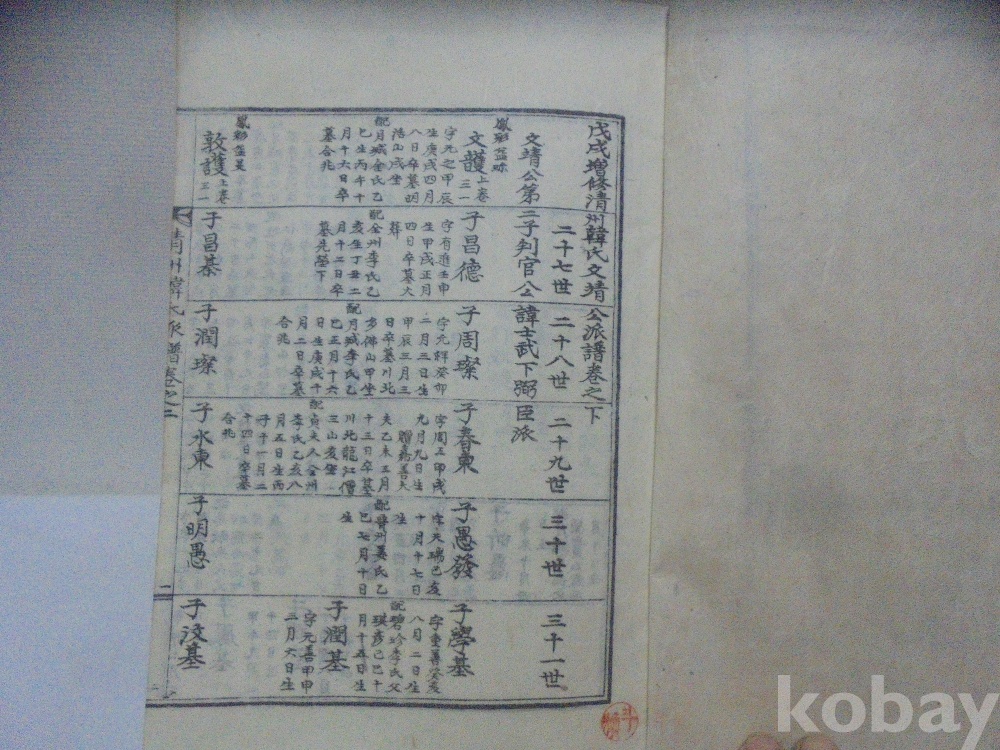 戊戌增修淸州韓氏文靖公派譜卷之下
文靖公第二子判官公諱士武下弼臣派
二十七世
二十八世
二十九世
三十世
三十一世
文頀 上卷三一
字元之甲辰
生庚戌四月
八日卒墓明
活山戌坐
配月城金氏乙
巳生丙午十
月十六日卒
墓合兆
敦護 上卷三一
子昌德
字有進壬申
生甲戌正月
四日卒墓火
葬
配全州李氏乙
亥生丁丑二
月十二日卒
墓先塋下
子昌基
子周璨
二月三日生
甲辰三月三
日卒墓川北
多佛山甲坐
配月城李氏乙
巳正月十六
日生庚戌十
月二日卒墓
合兆
子潤璨
子春東
字周三甲戌
九月九日生
贈嘉善大
夫乙未三月
十三日卒墓
川北龍江僧
三山亥坐
配貞夫人全州
李氏乙亥八
月五日生丙
子十一月二
十四日卒墓
合兆
子水東
子愚發
字天瑞己亥
十月十七日
生
配晉州姜氏乙
巳七月十日
生
子明愚
子學基
字重善癸亥
八月二日生
配碧珍李氏父
琪彦己巳十
月十五日生
子潤基
字元善甲申
二月六日生
子汶基
淸州韓氏派譜卷之二
kobay